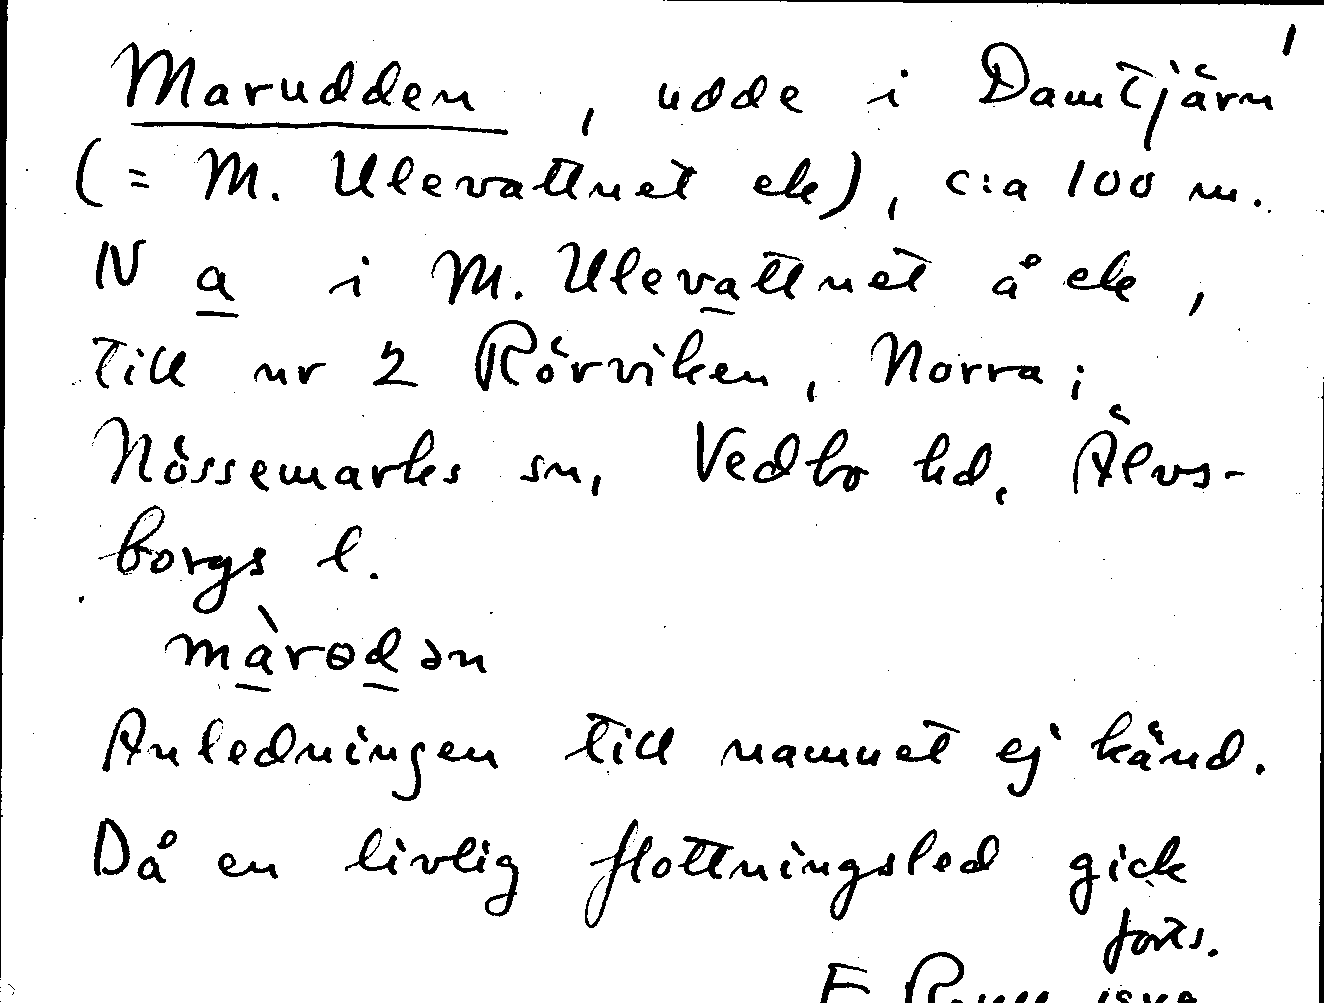 1
Marudden, udde i Damtjärn
(= M. Ulevattnet ek), c:a 100 m.
N a i M. Ulevattnet å ek,
till nr 2 Rörviken, Norra;
Nössemarks sn, Vedbo hd, Älvs-
borgs l.
màrɵdən
Anledningen till namnet ej känd.
Då en livlig flottningsled gick
forts.